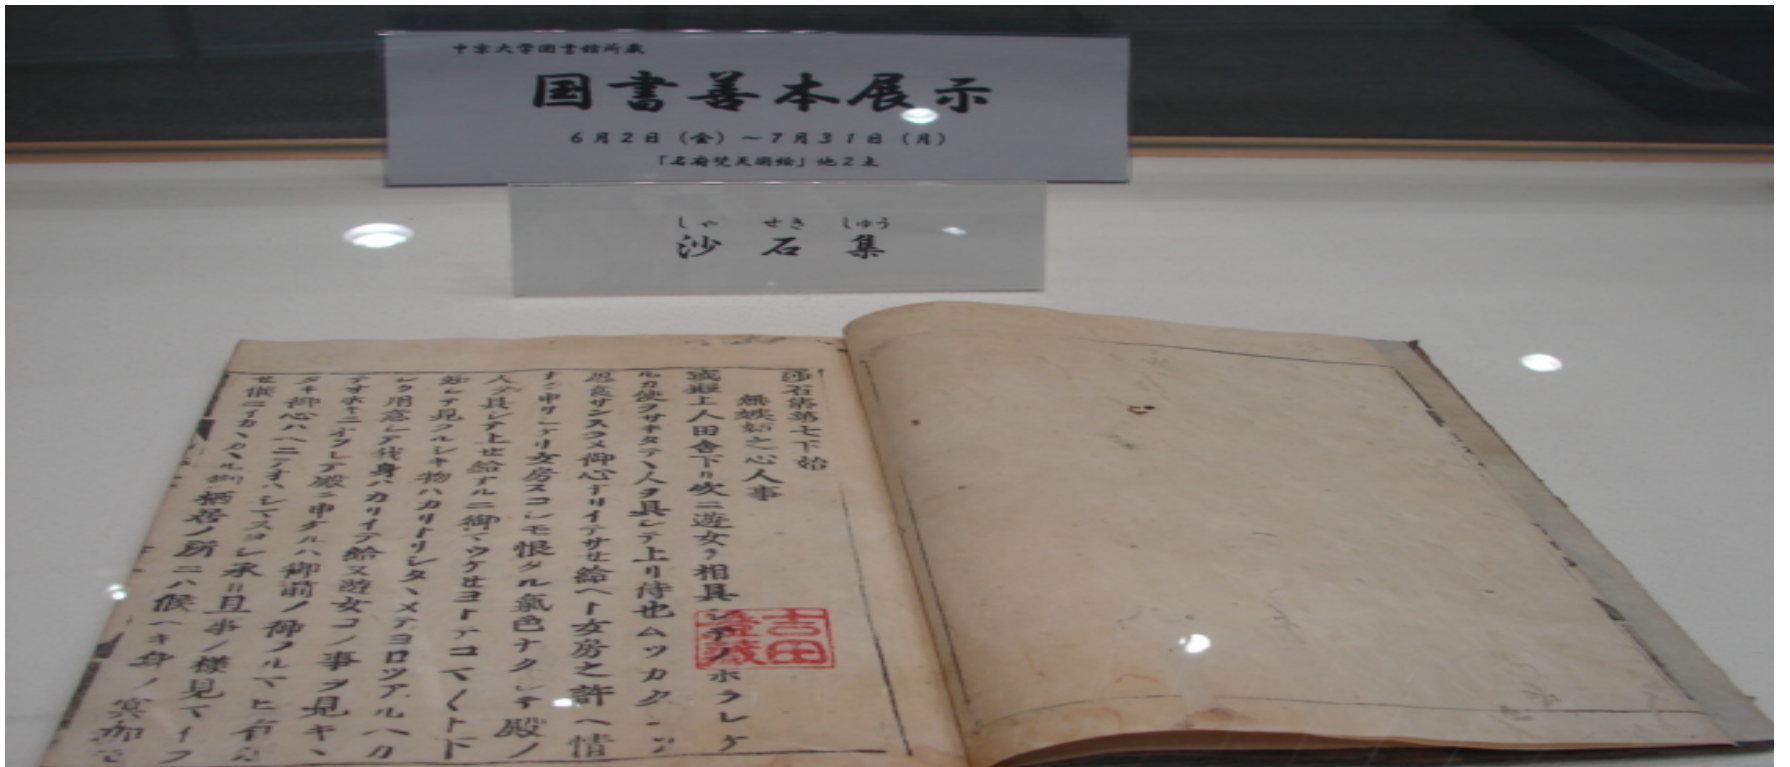 中京大学図書館所蔵
国書善本展示
6月2日（金）～7月31日（月）
「名府梵天図絵」他2点
しゃ せき しゅう
沙石集
沙石集第七下始
無嫉妬之心人事
或殿上人田舎下リ次ニ遊女ヲ相具シテノホラレケ
ルカ使ヲサキタテヽ人ヲ具シテ上リ侍也ムツカク
思食サンスラメ御心テリイテサセ給ヘト女房之許ヘ情
申サレケリ女房スコシモ恨タル氣色ナクシテ殿ノ
人ヲ具シテ上セ給ナルニ御マウケセヨトテコマ〱ト下
知シテ見クルシキ物ハカリトリシタヽメテヨロツアルヘカ
シク用意シテ我身ハカリイテ給又遊女コノ事ヲ見キヽ
テオホキニ シテ殿ニ申ケルハ御前ノ御フルマヒ有
タキ御心ハヘニテオハシマスヨシ承 且事ノ様見マイラ
セ候ニイカヽカヽル御栖居ノ所ニハ候ヘキ身ノ冥加
吉田
藏